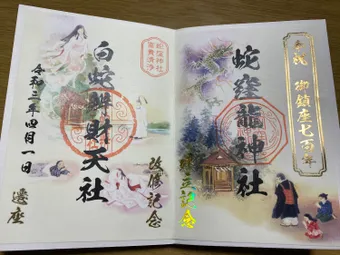 奉祝 御鎮座七百年
蛇窪龍神社
建立記念
蛇窪神社
富貴清浄
白蛇辨財天社
改修記念
令和二年四月一日 遷座